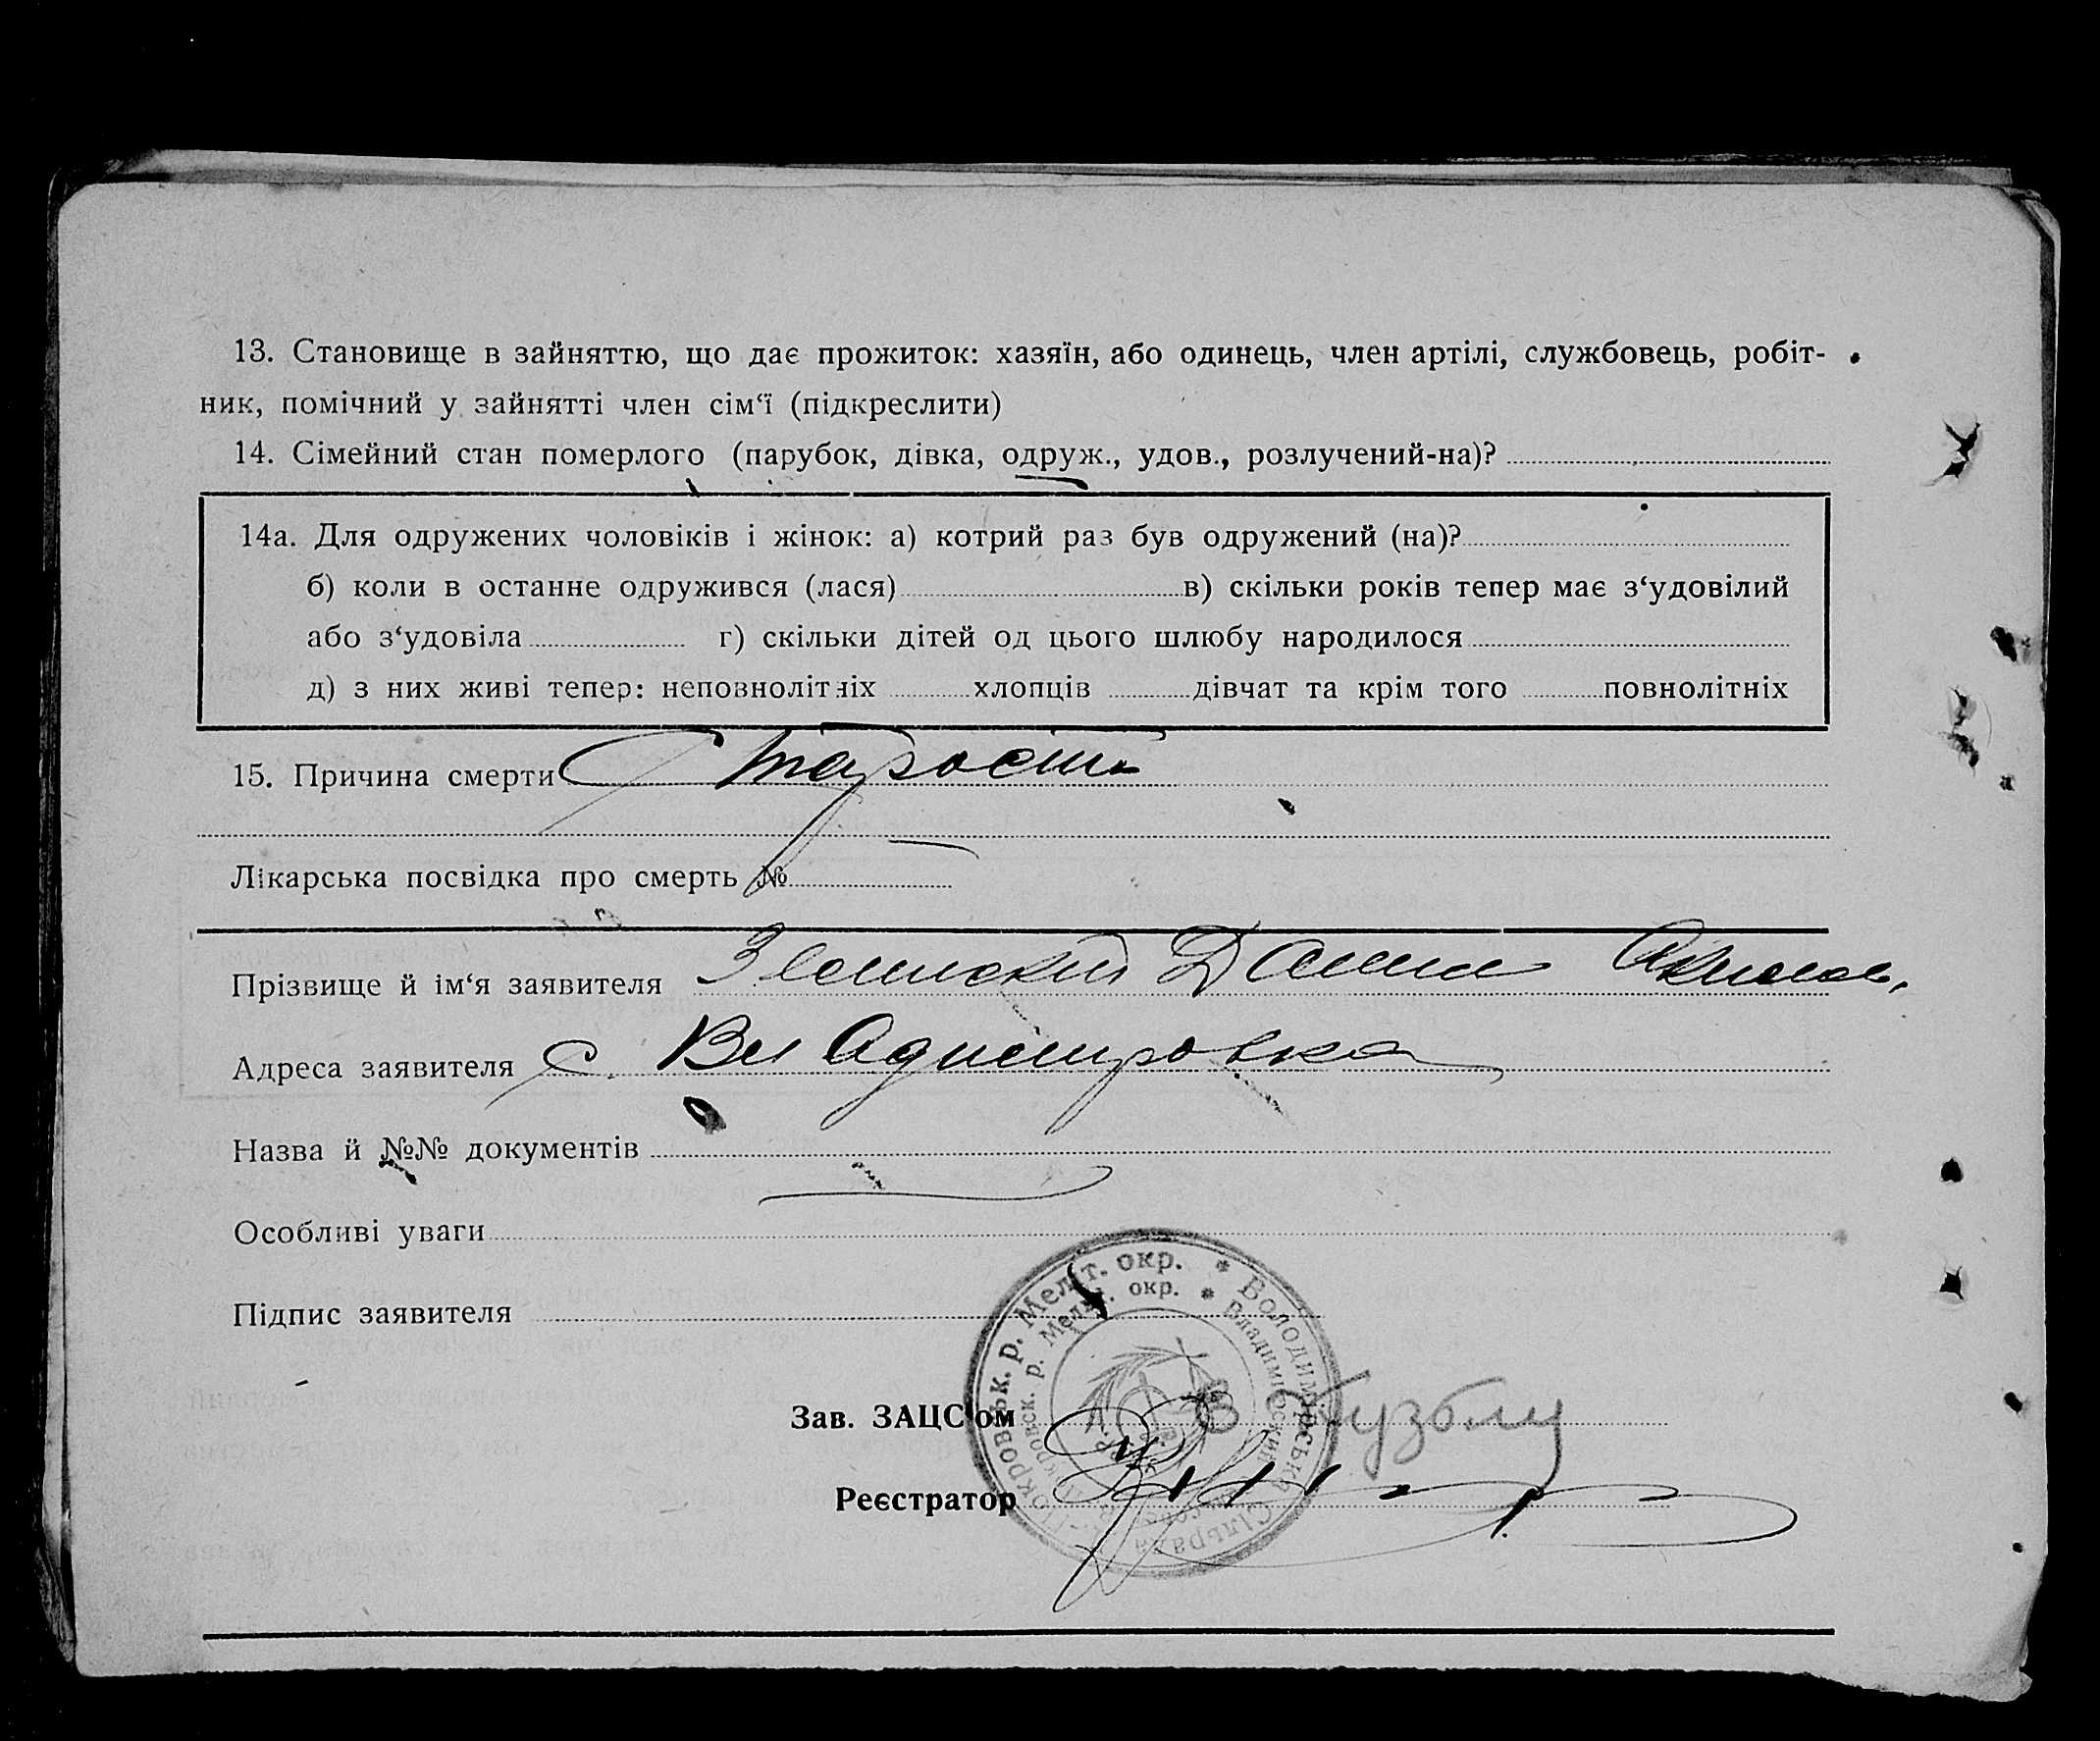 13. Становище в зайняттю, що дає прожиток: хазяїн, або одинець, член артілі, службовець, робіт-
ник, помічний у зайнятті член сім‘ї (підкреслити)
14. Сімейний стан померлого (парубок, дівка, одруж., удов., розлучений-на)?
14а. Для одружених чоловіків і жінок: а) котрий раз був одружений (на)?
б) коли в останне одружився (лася) в) скільки років тепер має з‘удовілий
або з‘удовіла г) скільки дітей од цього шлюбу народилося
д) з них живі тепер: неповнолітніх хлопців дівчат та крім того повнолітніх
15. Причина смерти Старость
Лікарська посвідка про смерть №
Прізвище й ім‘я заявителя Данил
Адреса заявителя с. Владимировка
Назва й №№ документів
Особливі уваги
Підпис заявителя
Володимирська Сільрада Покровськ. р. Меліт. окр.
р. Мелит. окр.
Зав. ЗАЦС‘ом
Реєстратор